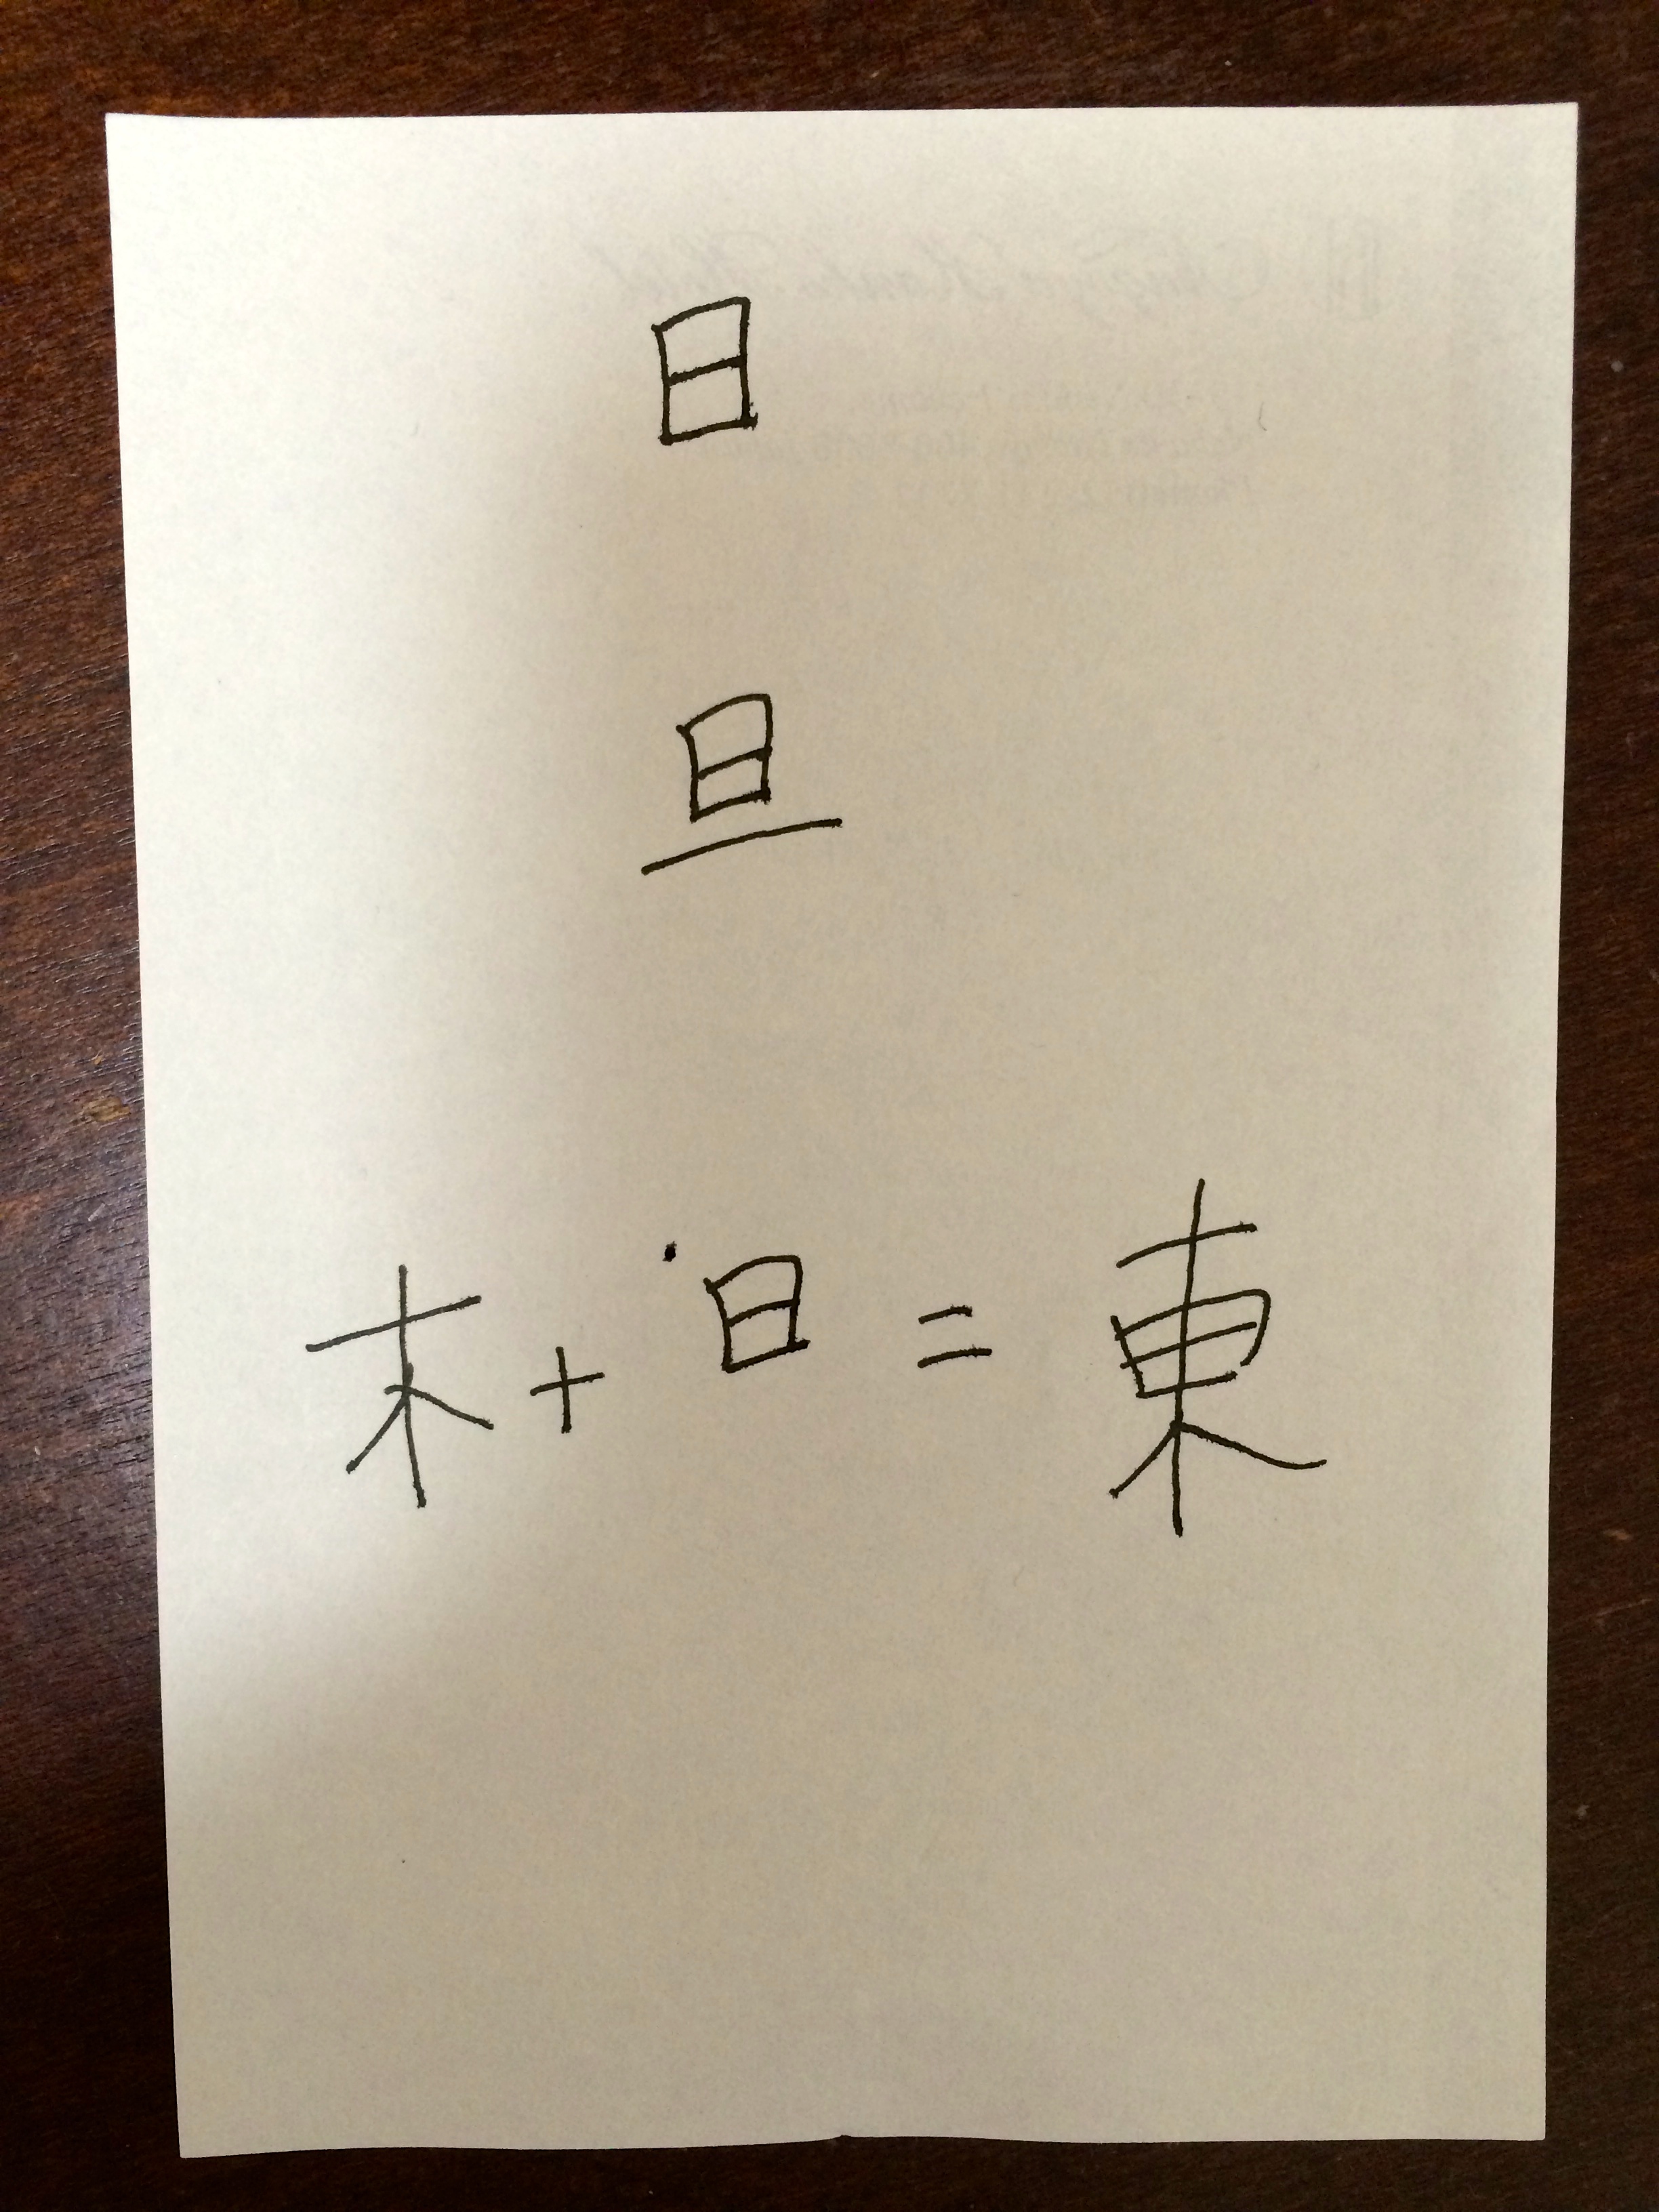 日
旦
木+日=東